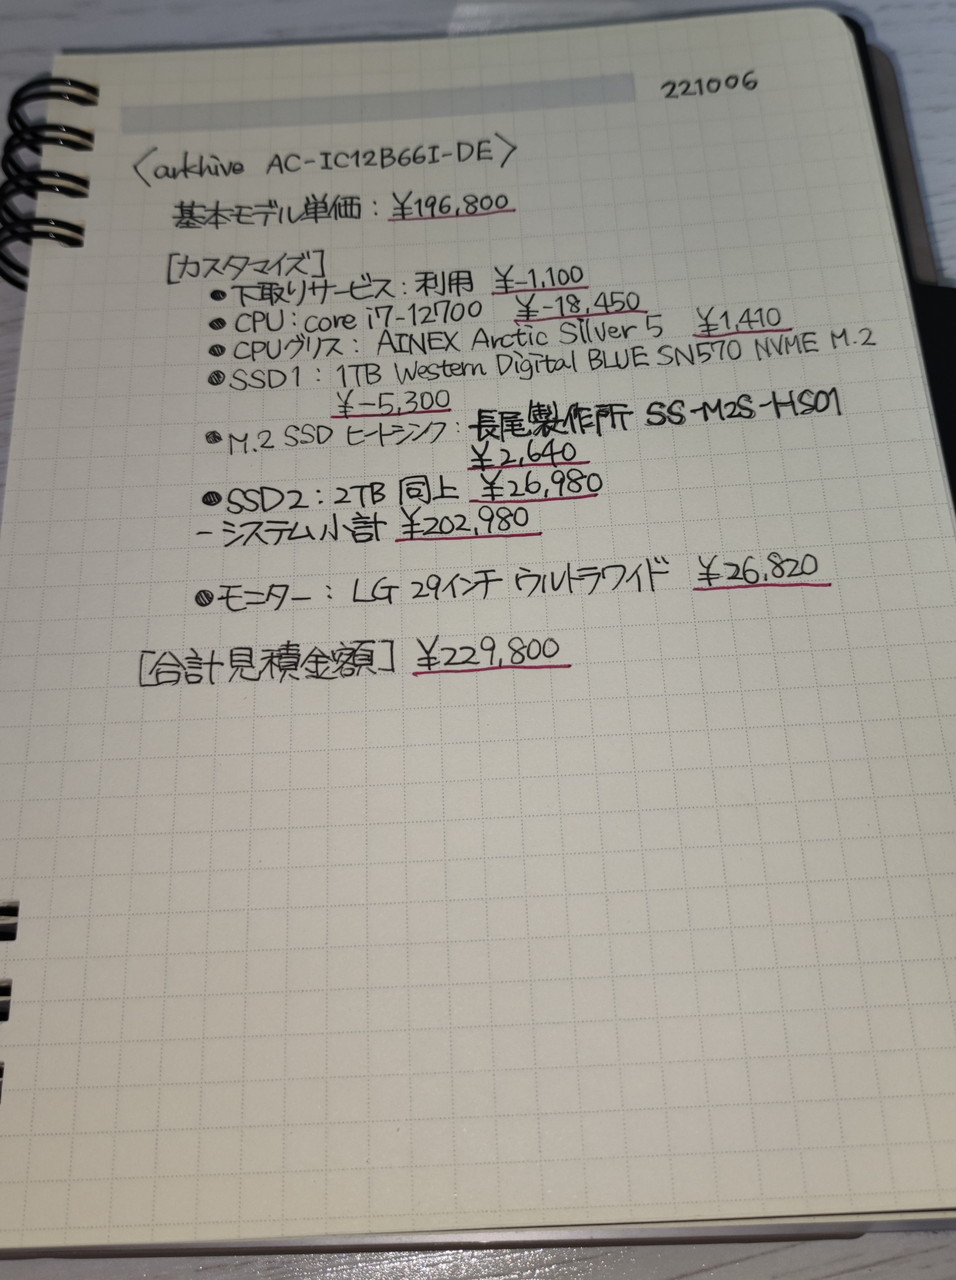 221006
〈arkhive AC-IC12B66I-DE〉
基本モデル単価：¥196,800
[カスタマイズ]
●下取りサービス：利用 ¥-1,100
●CPU：core i7-12700 ¥-18,450
●CPUグリス：AINEX Arctic Silver 5 ¥1,410
●SSD1：1TB Western Digital BLUE SN570 NVME M.2
¥-5,300
●M.2 SSD ヒートシンク：長尾製作所 SS-M2S-HS01
¥2,640
●SSD2：2TB 同上 ¥26,980
-システム小計 ¥202,980
●モニター：LG 29インチ ウルトラワイド ¥26,820
[合計見積金額] ¥229,800